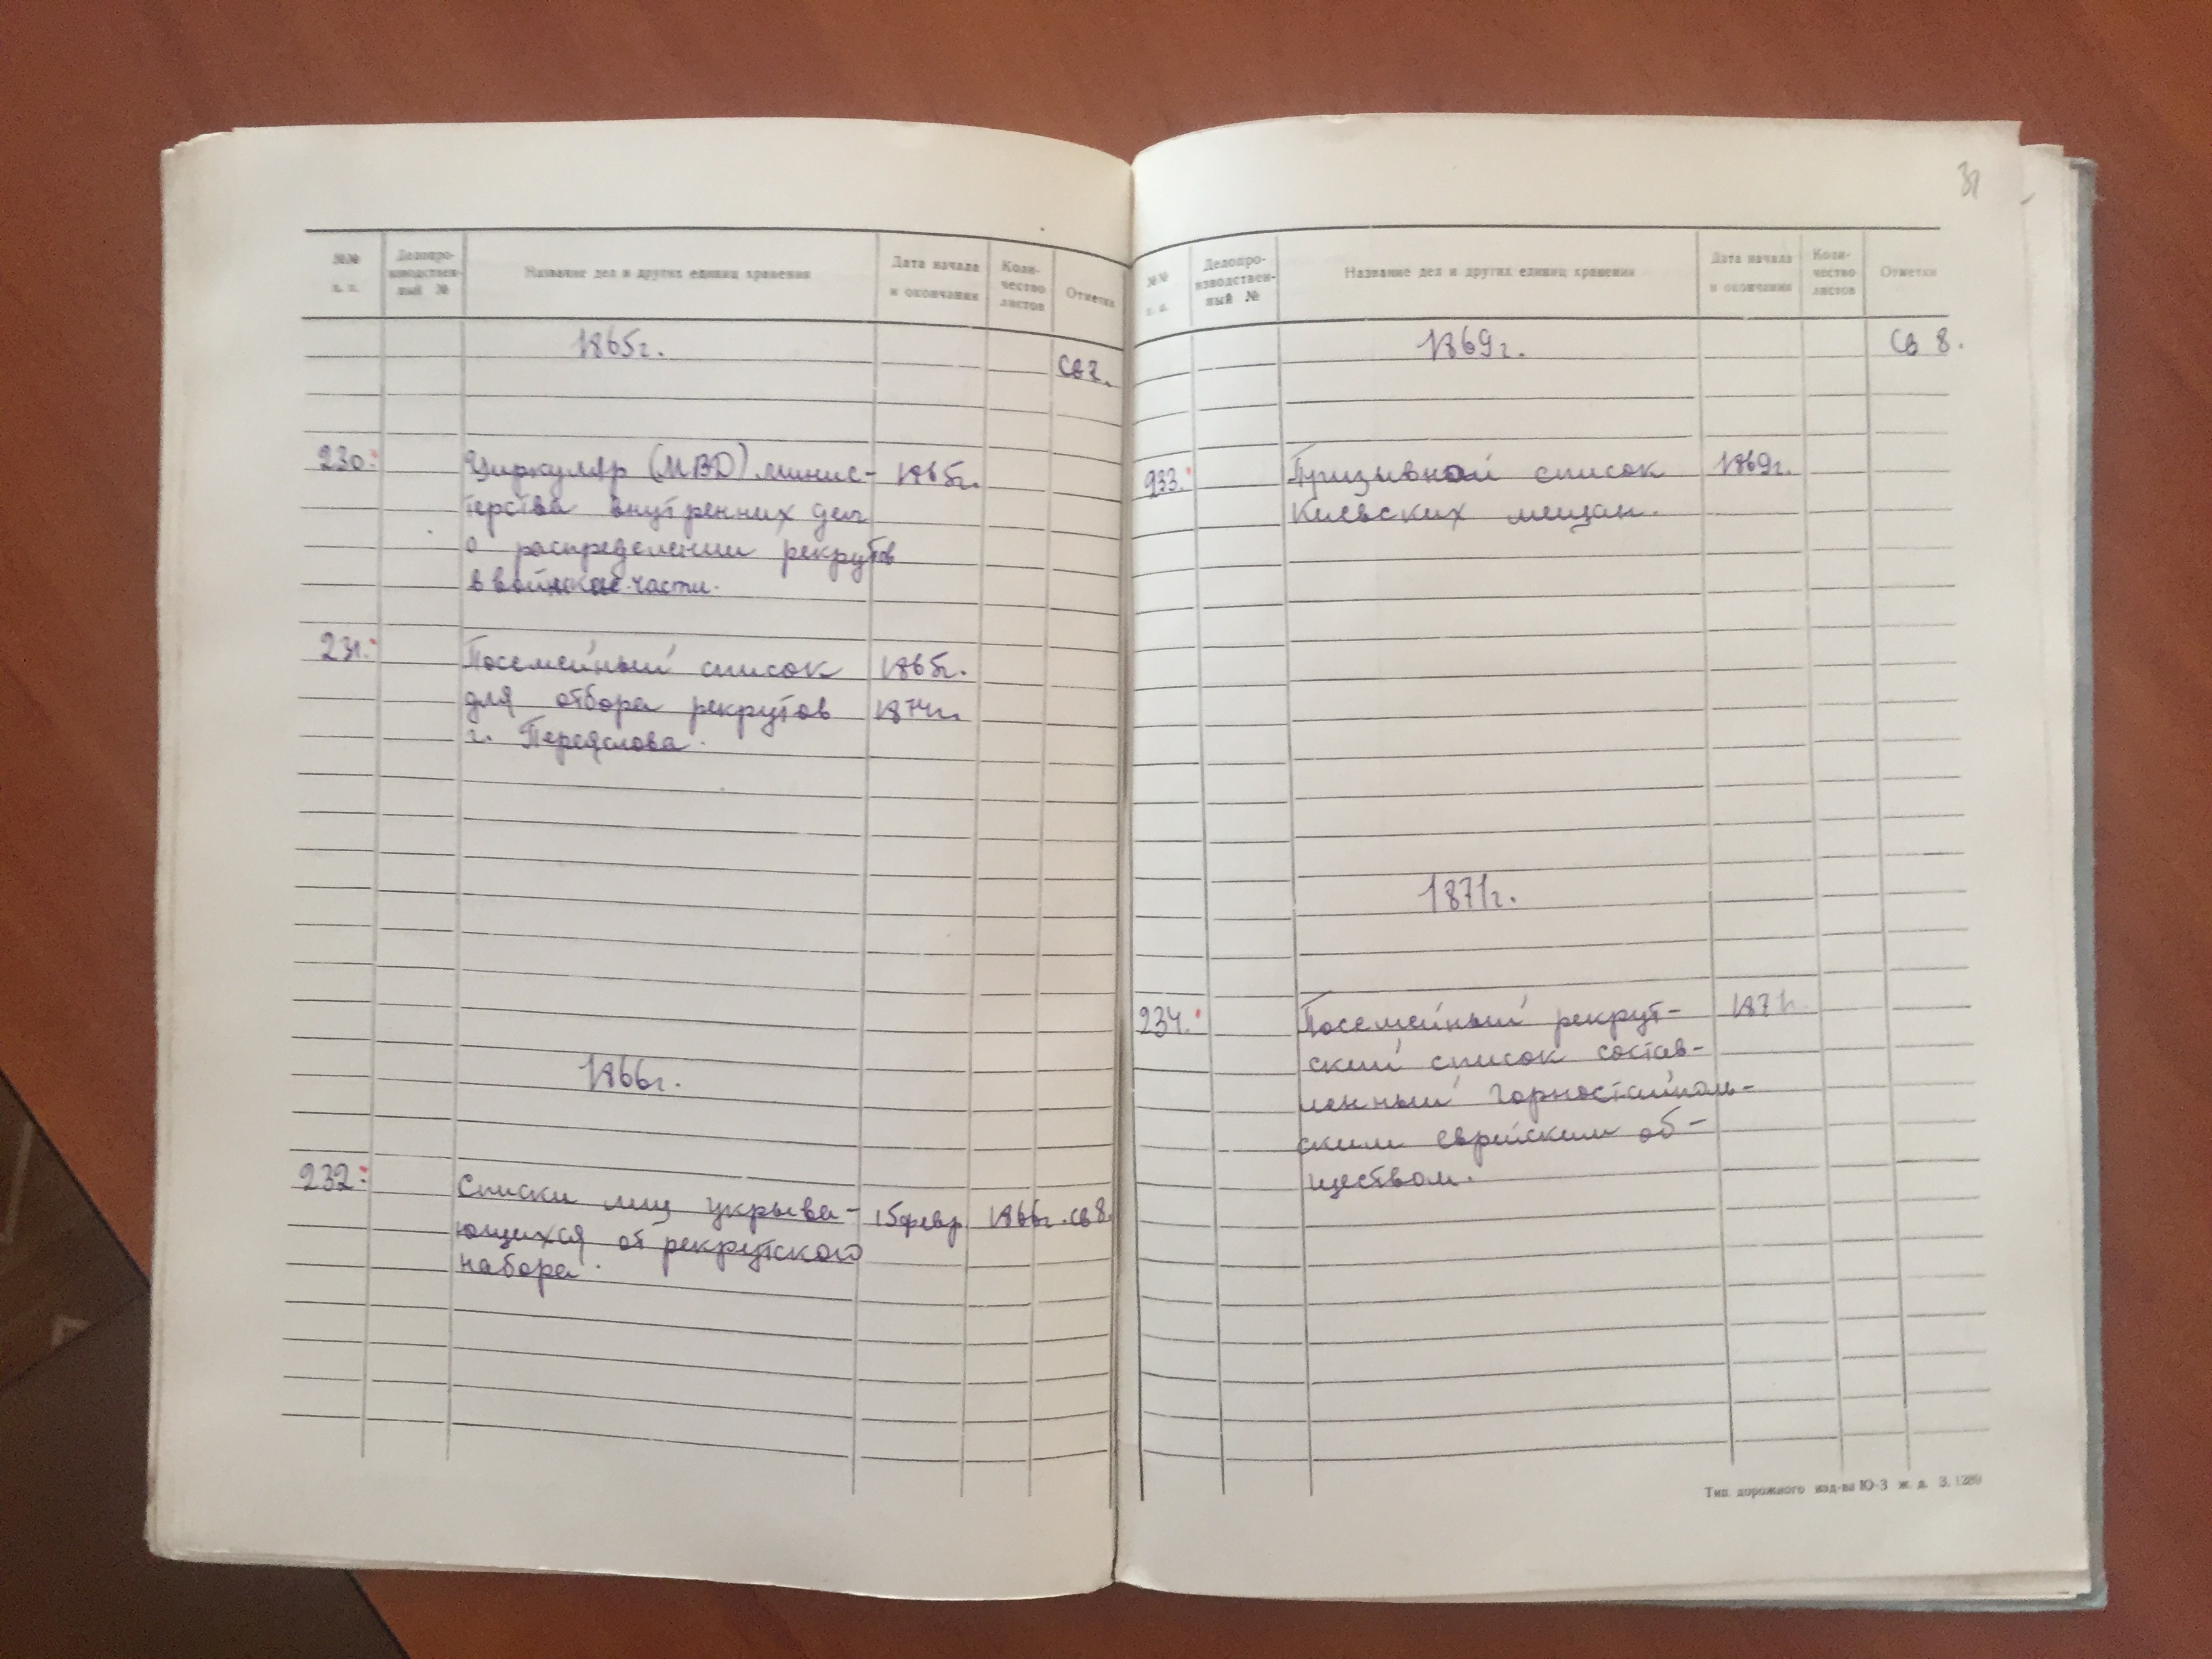 №№
п. п.
Делопро-
изводствен-
ный №
Название дел и других единиц хранения
Дата начала
и окончания
Коли-
чество
листов
Отметки
1865г.
Св 7.
230.
Циркуляр (МВД) минис-
1865г.
терства внутренних дел
о распределении рекрутов
в войнские части.
231.
Посемейный список
1865г.
для отбора рекрутов
1874г.
г. Переяслова.
1866г.
232.
Списки лиц укрыва-
15 февр. 1866г. св 8.
ющихся от рекрутского
набора.
31
№№
п. п.
Делопро-
изводствен-
ный №
Название дел и других единиц хранения
Дата начала
и окончания
Коли-
чество
листов
Отметки
1869г.
Св 8.
233.
Призывной список
1869г.
Киевских мещан.
1871г.
234.
Посемейный рекрут-
1871г.
ский список состав-
ленный Горностайполь-
ским еврейским об-
ществом.
Тип. дорожного изд-ва Ю-З ж. д. З. 1280